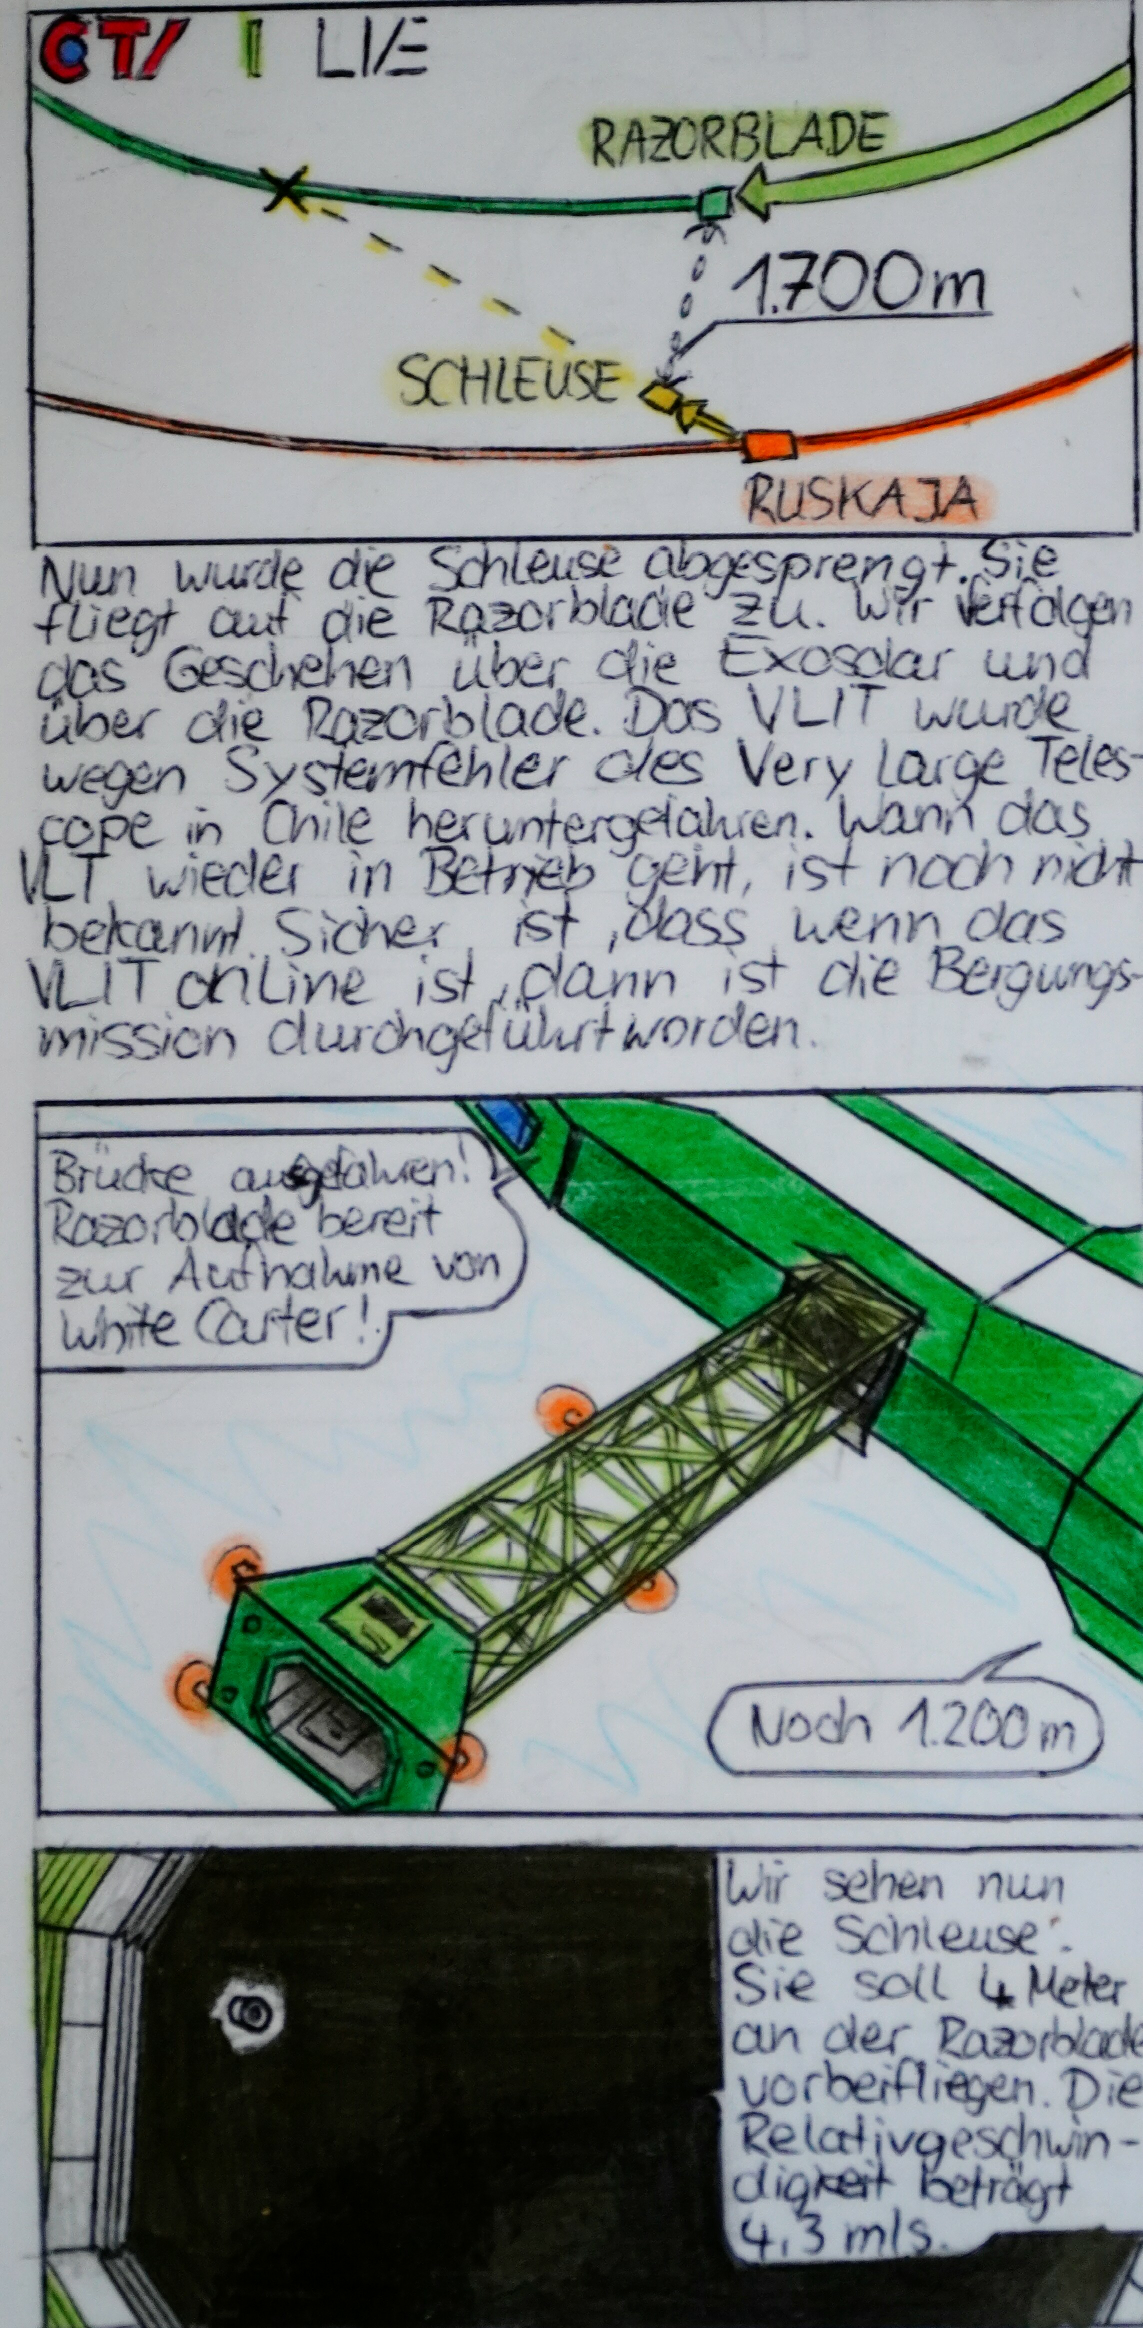 CTV 1 LIVE
RAZORBLADE
1.700m
SCHLEUSE
RUSKAJA
Nun wurde die Schleuse abgesprengt. Sie
fliegt auf die Razorblade zu. Wir verfolgen
das Geschehen über die Exosolar und
über die Razorblade. Das VLIT wurde
wegen Systemfehler des Very Large Teles-
cope in Chile heruntergefahren. Wann das
VLT wieder in Betrieb geht, ist noch nicht
bekannt. Sicher ist, dass wenn das
VLIT online ist, dann ist die Bergungs-
mission durchgeführt worden.
Brücke ausgefahren!
Razorblade bereit
zur Aufnahme von
White Carter!
Noch 1.200m
Wir sehen nun
die Schleuse.
Sie soll 4 Meter
an der Razorblade
vorbeifliegen. Die
Relativgeschwin-
digkeit beträgt
4,3 m/s.